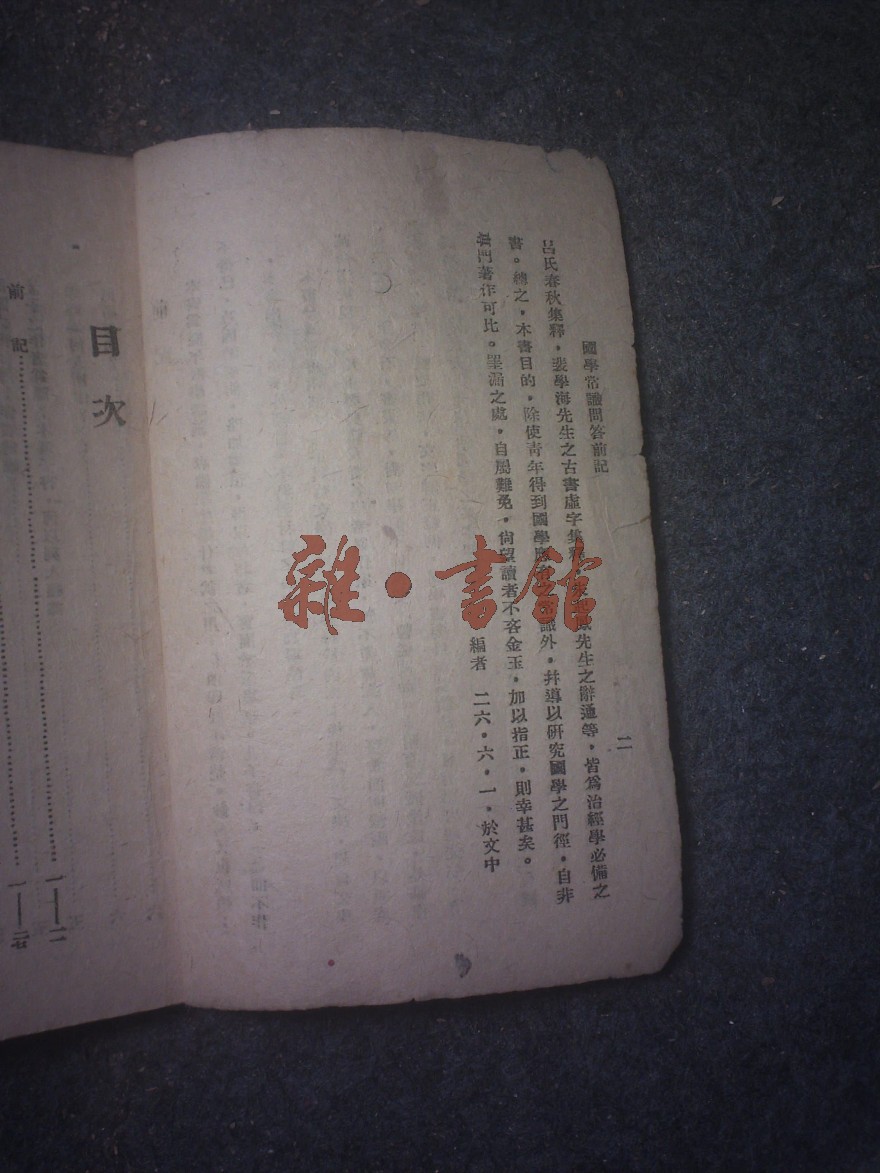 國學常識問答前記
二
呂氏春秋集釋，裴學海先生之古書虛字集釋，先生之辭通等，皆爲治經學必備之
書。總之，本書目的，除使靑年得到國學應識外，幷導以硏究國學之門徑，自非
專門著作可比。罣漏之處，自屬難免，尙望讀者不吝金玉，加以指正，則幸甚矣。
編者 二六．六．一．於文中
目次
前記 一—二
一—
雜·書館